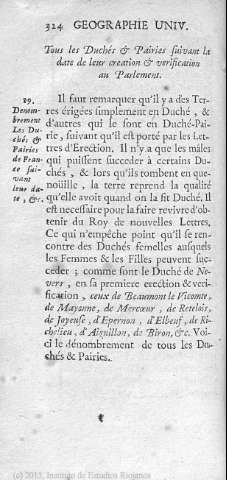 324 GEOGRAPHIE UNIV.
Tous les Duchés & Pairies suivant la
date de leur creation & verification
au Parlement.
29.
Denom-
brement
Les Du-
chés &
Pairies
de Fran-
ce sui-
vant
leur da-
te, &c.
Il faut remarquer qu'il y a des Ter-
res érigées simplement en Duché, &
d'autres qui le font en Duché-Pai-
rie, suivant qu'il est porté par les Let-
tres d'Erection. Il n'y a que les mâles
qui puissent succeder à certains Du-
chés, & lors qu'ils tombent en que-
noüille, la terre reprend la qualité
qu'elle avoit quand on la fit Duché. Il
est necessaire pour la faire revivre d'ob-
tenir du Roy de nouvelles Lettres.
Ce qui n'empêche point qu'il se ren-
contre des Duchés femelles ausquels
les Femmes & les Filles peuvent suc-
ceder; comme sont le Duché de Ne-
vers, en sa premiere erection & veri-
fication, ceux de Beaumont le Vicomte,
de Mayenne, de Mercœur, de Retelois,
de Joyeuse, d'Epernon, d'Elbeuf, de Ri-
chelieu, d'Aiguillon, de Biron, &c. Voi-
ci le dénombrement de tous les Du-
chés & Pairies.
(c) 2013, Instituto de Estudios Riojanos